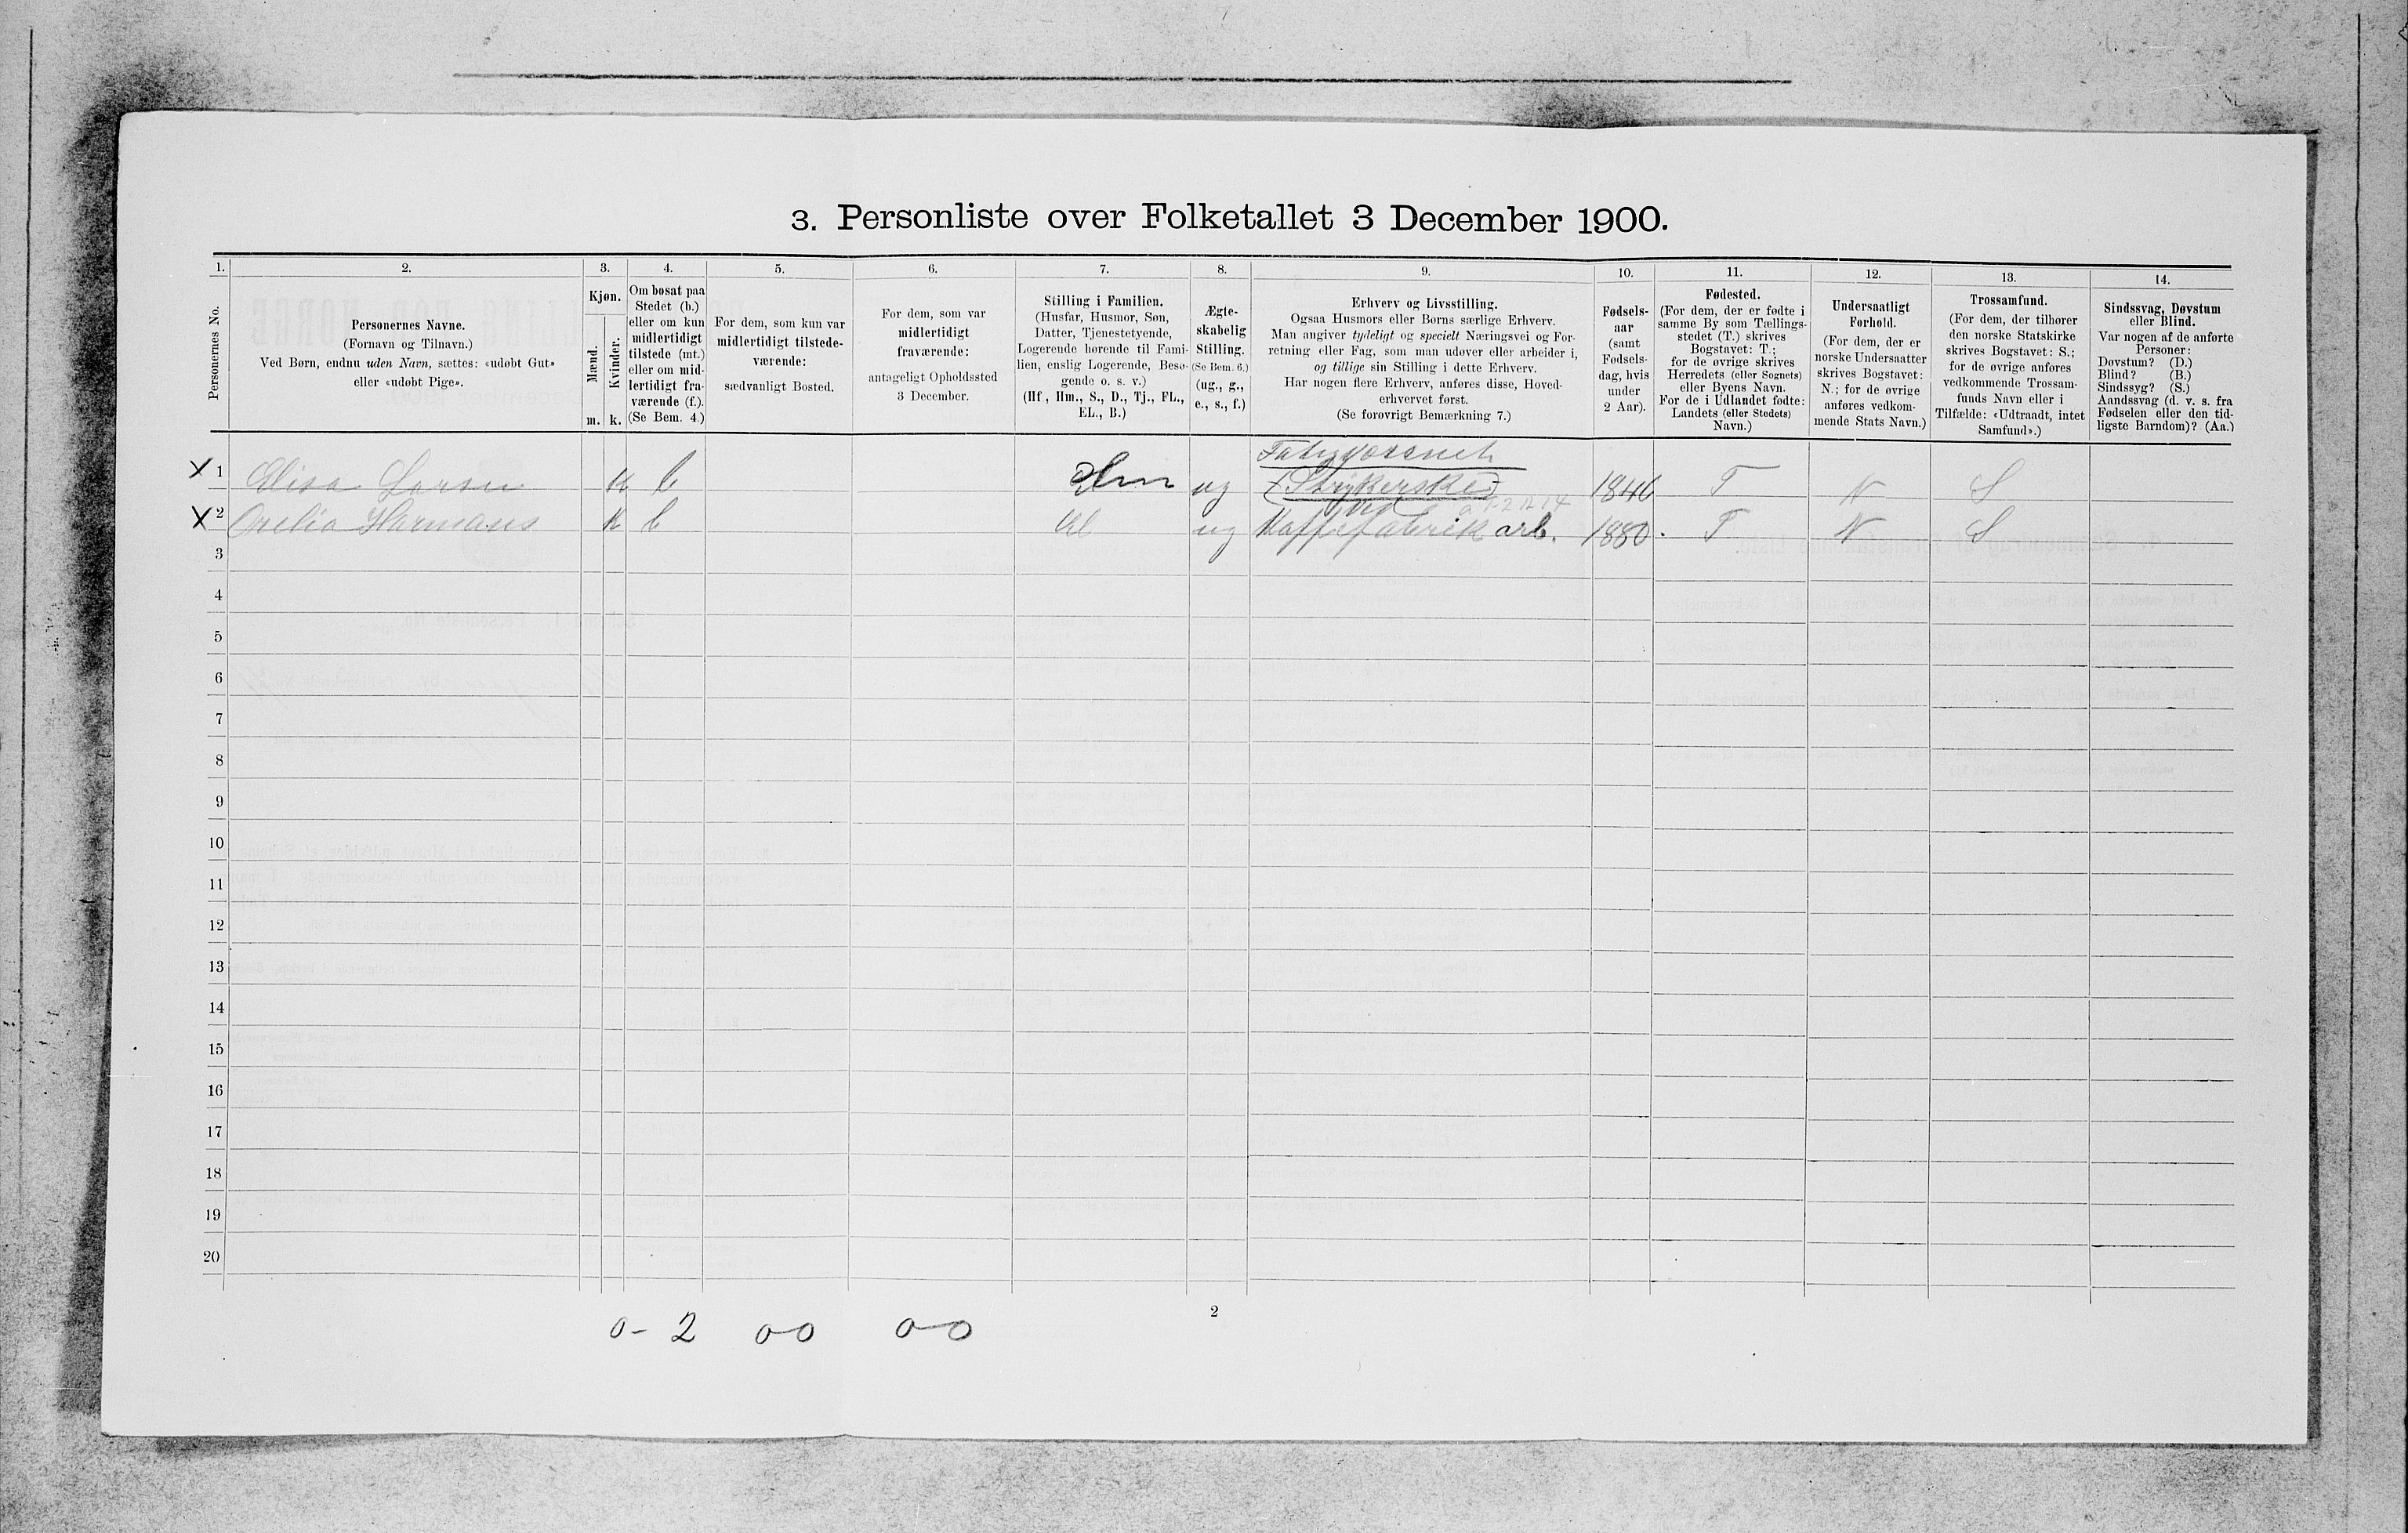 3. Personliste over Folketallet 3 December 1900.
1. 2. 3. 4. 5. 6. 7. 8. 9. 10. 11. 12. 13. 14.
Personernes No.
Personernes Navne.
(Fornavn og Tilnavn.)
Ved Børn, endnu uden Navn, sættes: «udøbt Gut»
eller «udøbt Pige».
Kjøn.
Mænd.
Kvinder.
m. k.
Om bosat paa
Stedet (b.)
eller om kun
midlertidigt
tilstede (mt.)
eller om mid-
lertidigt fra-
værende (f.).
(Se Bem. 4.)
For dem, som kun var
midlertidigt tilstede-
værende:
sædvanligt Bosted.
For dem, som var
midlertidigt
fraværende:
antageligt Opholdssted
3 December.
Stilling i Familien.
(Husfar, Husmor, Søn,
Datter, Tjenestetyende,
Logerende hørende til Fami-
lien, enslig Logerende, Besø-
gende o. s. v.)
(Hf, Hm., S., D., Tj., FL.,
EL., B.)
Ægte-
skabelig
Stilling.
(Se Bem. 6.)
(ug., g.,
e., s., f.)
Erhverv og Livsstilling.
Ogsaa Husmors eller Børns særlige Erhverv.
Man angiver tydeligt og specielt Næringsvei og For-
retning eller Fag, som man udøver eller arbeider i,
og tillige sin Stilling i dette Erhverv.
Har nogen flere Erhverv, anføres disse, Hoved-
erhvervet først.
(Se forøvrigt Bemærkning 7.)
Fødsels-
aar
(samt
Fødsels-
dag, hvis
under
2 Aar).
Fødested.
(For dem, der er fødte i
samme By som Tællings-
stedet (T.) skrives
Bogstavet: T;
for de øvrige skrives
Herredets (eller Sognets)
eller Byens Navn.
For de i Udlandet fødte:
Landets (eller Stedets)
Navn.)
Undersaatligt
Forhold.
(For dem, der er
norske Undersaatter
skrives Bogstavet:
N.; for de øvrige
anføres vedkom-
mende Stats Navn.)
Trossamfund.
(For dem, der tilhører
den norske Statskirke
skrives Bogstavet: S.;
for de øvrige anføres
vedkommende Trossam-
funds Navn eller i
Tilfælde: «Udtraadt, intet
Samfund».)
Sindssvag, Døvstum
eller Blind.
Var nogen af de anførte
Personer:
Døvstum? (D.)
Blind? (B.)
Sindssyg? (S.)
Aandssvag (d. v. s. fra
Fødselen eller den tid-
ligste Barndom)? (Aa.)
X 1 Elisa Larsen k b Hm ug (Strykerske) 1846 T N S
X 2 Orelia Hermans k b El ug Kaffefabrik arb. 1880. T N S
3
4
5
6
7
8
9
10
11
12
13
14
15
16
17
18
19
20
2
0-2 00 0-0